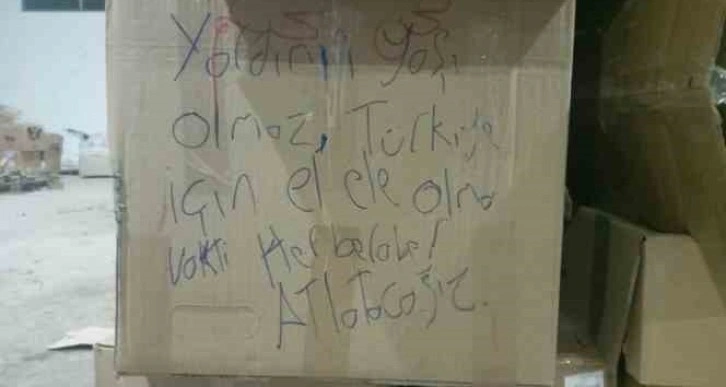 Yardımın yaşı
olmaz, Türkiye
için el ele olma
vakti Hep beraber
ATlatacağız.